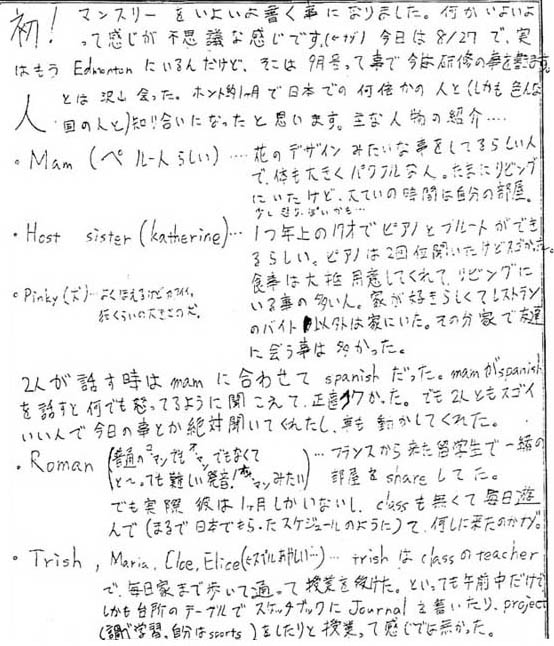 初! マンスリーをいよいよ書く事になりました。何かいよいよ
って感じが不思議な感じです。今日は8/27で、実
はもうEdmontonにいるんだけど、そこは9月号って事で今は研修の事を書きます。
人とは沢山会った。ホント約1ヶ月で日本での何倍かの人と(しかも色んな
国の人と)知り合いになったと思います。主な人物の紹介……
・Mam (ペルー人らしい) … 花のデザインみたいな事をしてるらしい人
で、体も大きくパワフルな人。たまにリビング
にいたけど、大ていの時間は自分の部屋。
・Host sister (katherine) … 1つ年上の17才でピアノとフルートができ
るらしい。ピアノは2回位聞いたけどスゴかった。
食事は大抵用意してくれて、リビングに
いる事の多い人。家が好きらしくてレストラン
のバイト以外は家にいた。その分家で友達
に会う事は多かった。
・Pinky (犬) … よくほえるけどカワイイ。
2人が話す時はmamに合わせてspanishだった。mamがspanish
を話すと何でも怒ってるように聞こえて、正直コワかった。でも2人ともスゴイ
いい人で今日の事とか絶対聞いてくれたし、車も動かしてくれた。
・Roman (普通のコマンでもオマンでもなくて
と~っても難しい発音! みたい) … フランスから来た留学生で一緒の
部屋をshareしてた。
でも実際彼は1ヶ月しかいないし、classも無くて毎日遊
んで(まるで日本でもらったスケジュールのように)て、何しに来たのかナゾ。
・Trish, Maria, Cloe, Elice … trishはclassのteacher
で、毎日家まで歩いて通って授業を受けた。といっても午前中だけで
しかも台所のテーブルでスケッチブックにJournalを書いたり、project
(調べ学習。自分はsports)をしたりと授業って感じでは無かった。